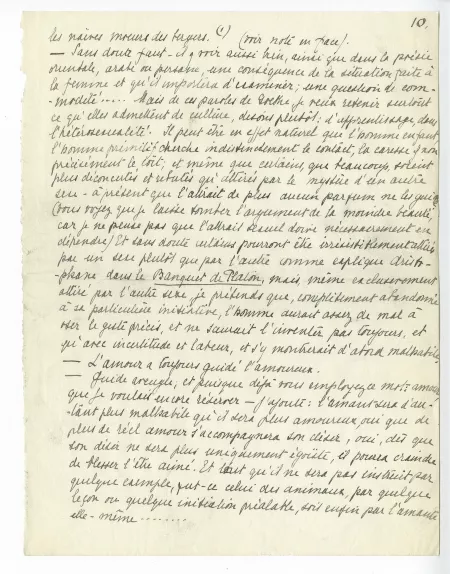 10.
les naïves moeurs des bergers. (1) (voir note en face).
— Sans doute faut-il y voir aussi bien, ainsi que dans la poésie
orientale, arabe ou persane, une conséquence de la situation faite à
la femme et qu'il importera d'examiner; une question de com-
-modité..... Mais de ces paroles de Goethe, je veux retenir surtout
ce qu'elles admettent de culture, disons plutôt: d'apprentissage, dans
l'hétérosexualité. Il peut être en effet naturel que l'homme enfant,
l'homme primitif, cherche indistinctement le contact, la caresse & non
précisément le coït, et même que certains, que beaucoup, soient
plus déconcertés et rebutés qu'attirés par le mystère d'un autre
sexe - à présent que l'attrait de plus aucun parfum ne les guide
(vous voyez que je laisse tomber l'argument de la moindre beauté,
car je ne pense pas que l'attrait sexuel doive nécessairement en
dépendre) Et sans doute certains pourront être irrésistiblement attirés
par un sexe plutôt que par l'autre comme explique Aristo-
phane dans le Banquet de Platon, mais, même exclusivement
attiré par l'autre sexe je prétends que, complètement abandonné
à sa particulière initiative, l'homme aurait assez de mal à
oser le geste précis, et ne saurait l'inventer pas toujours, et
qu'avec incertitude et labeur, et s'y montrerait d'abord malhabile
— L'amour a toujours guidé l'amoureux.
— Guide aveugle, et puisque déjà vous employez ce mot: amour
que je voulais encore réserver — j'ajoute: l'amant sera d'au-
-tant plus malhabile qu'il sera plus amoureux, oui que de
plus de réel amour s'accompagnera son désir, oui, dès que
son désir ne sera plus uniquement égoïste, il pourra craindre
de blesser l'être aimé. Et tant qu'il ne sera pas instruit par
quelque exemple, fut-ce celui des animaux, par quelque
leçon ou quelque initiation préalable, soit enfin par l'amante
elle-même........